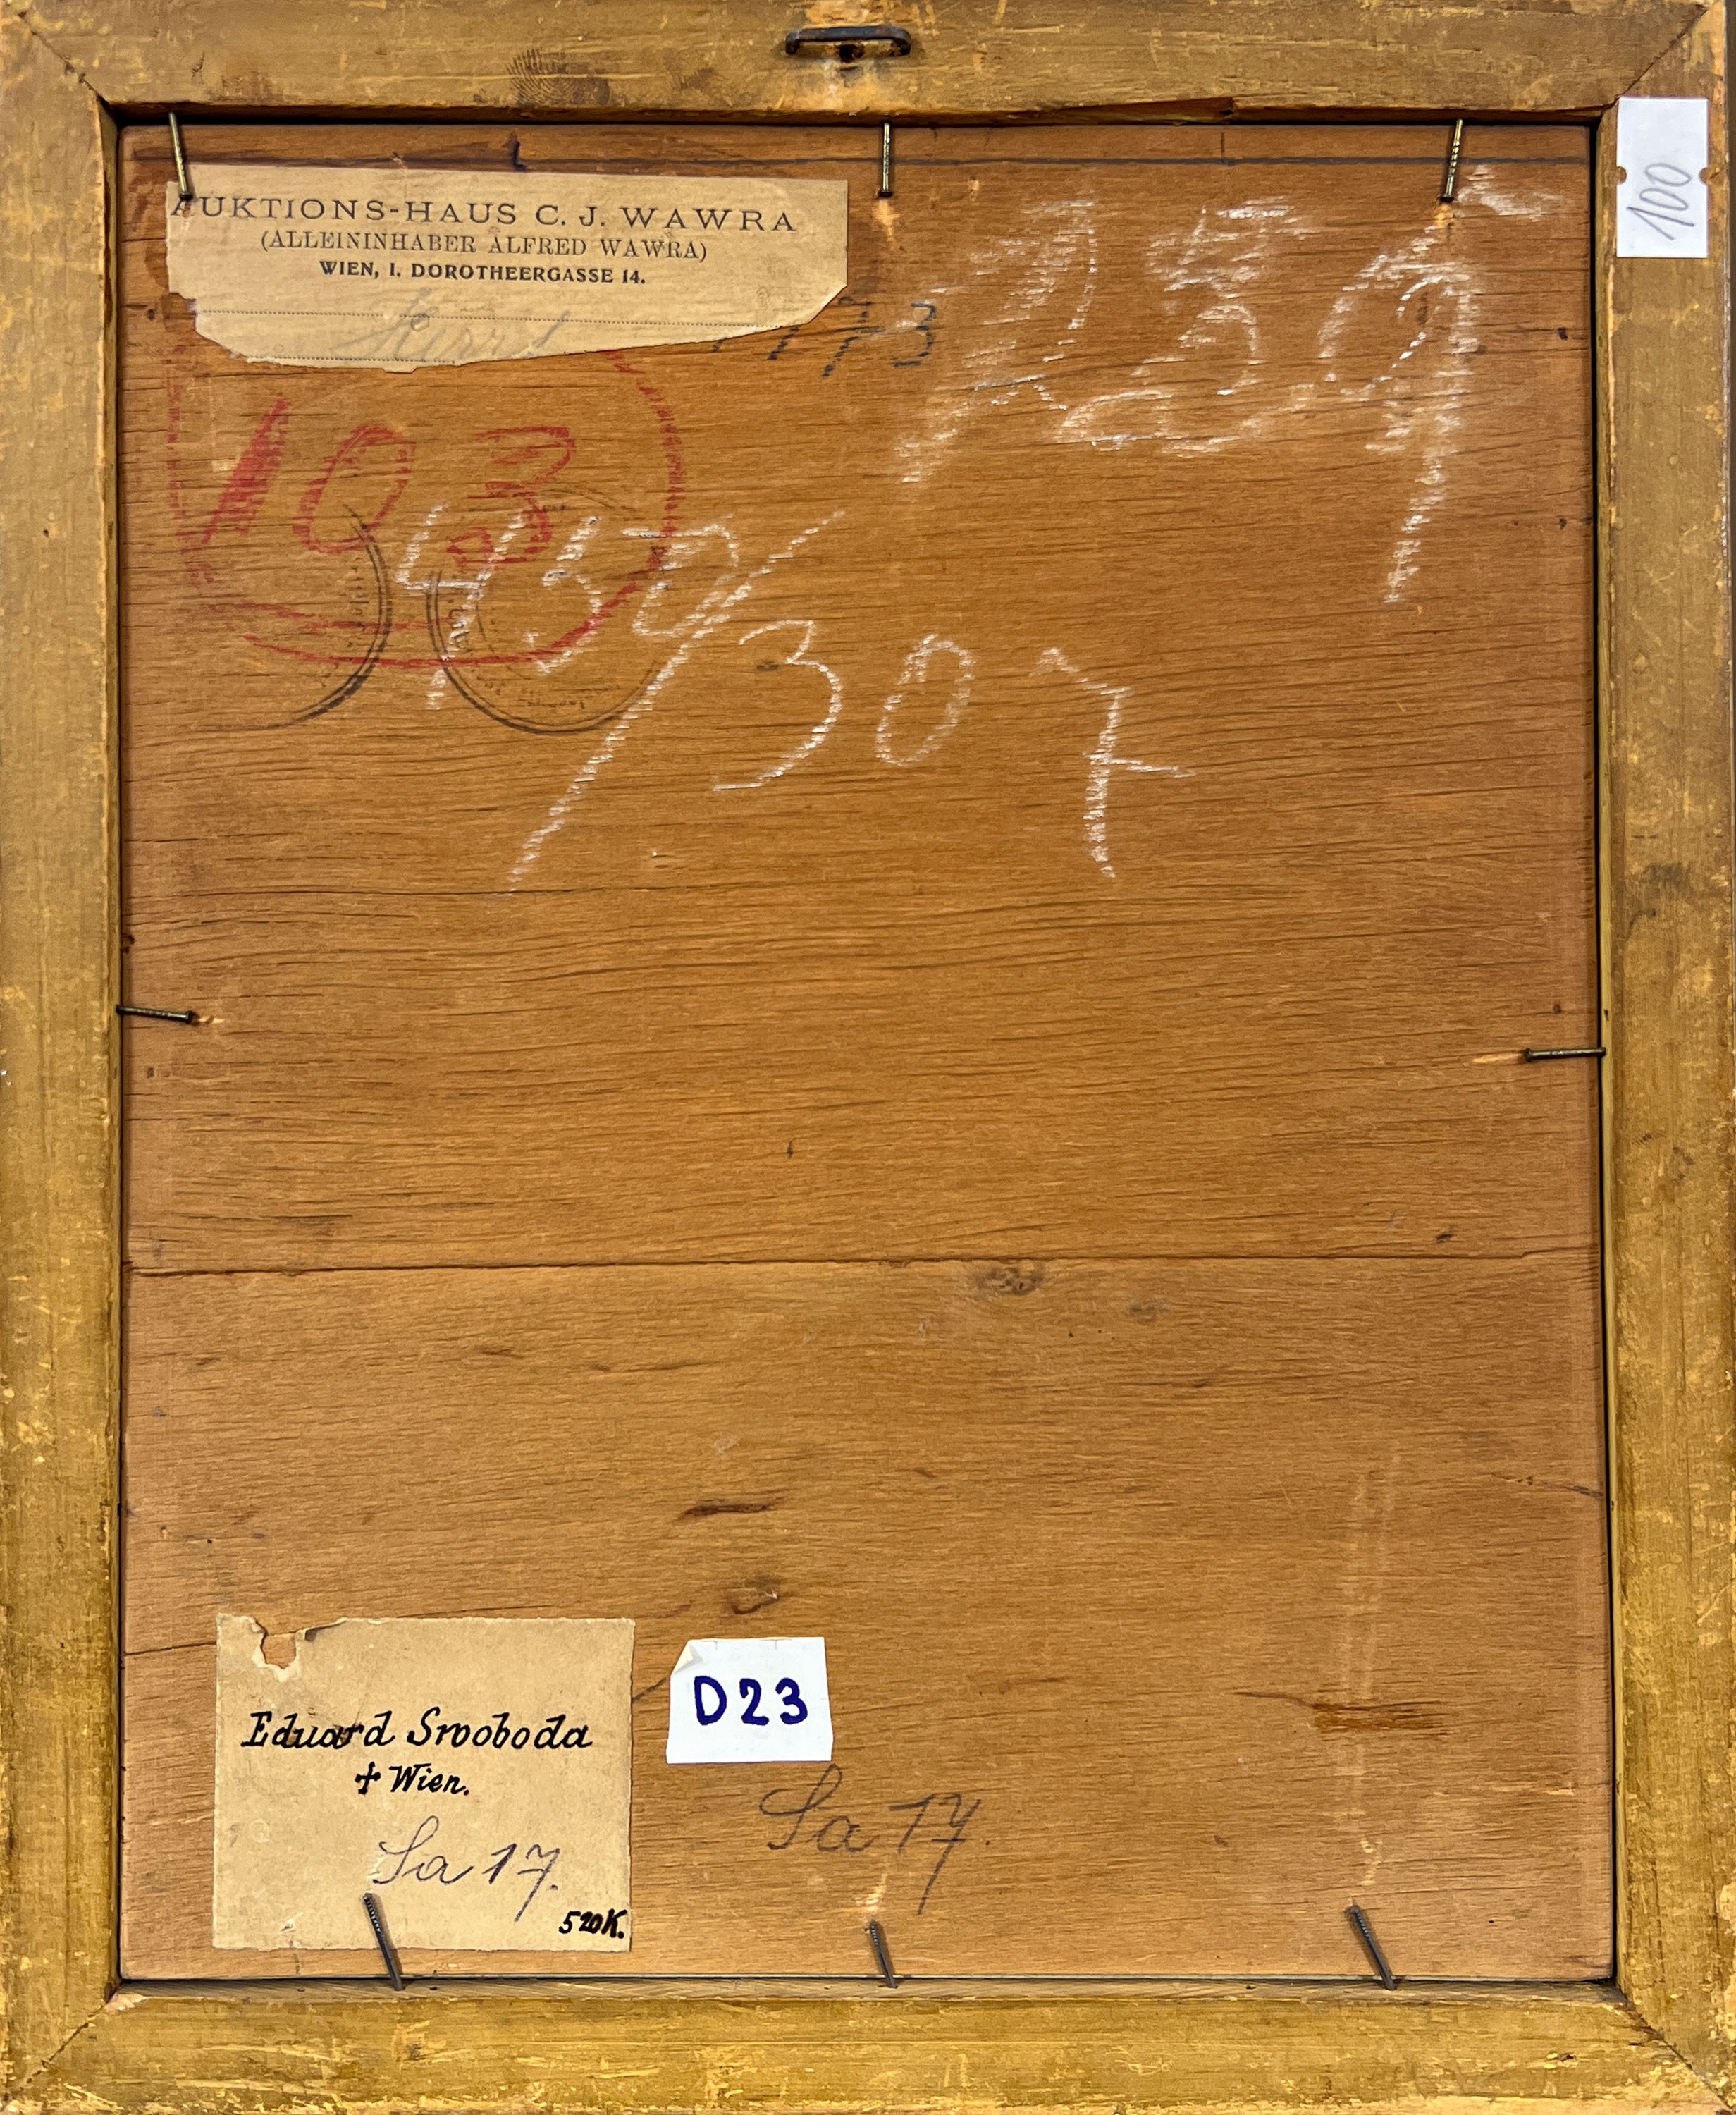 AUKTIONS-HAUS C. J. WAWRA
(ALLEININHABER ALFRED WAWRA)
WIEN, I. DOROTHEERGASSE 14.
100
103
450/307
Eduard Swoboda
+ Wien.
Sa 17.
520K.
D23
Sa 17.